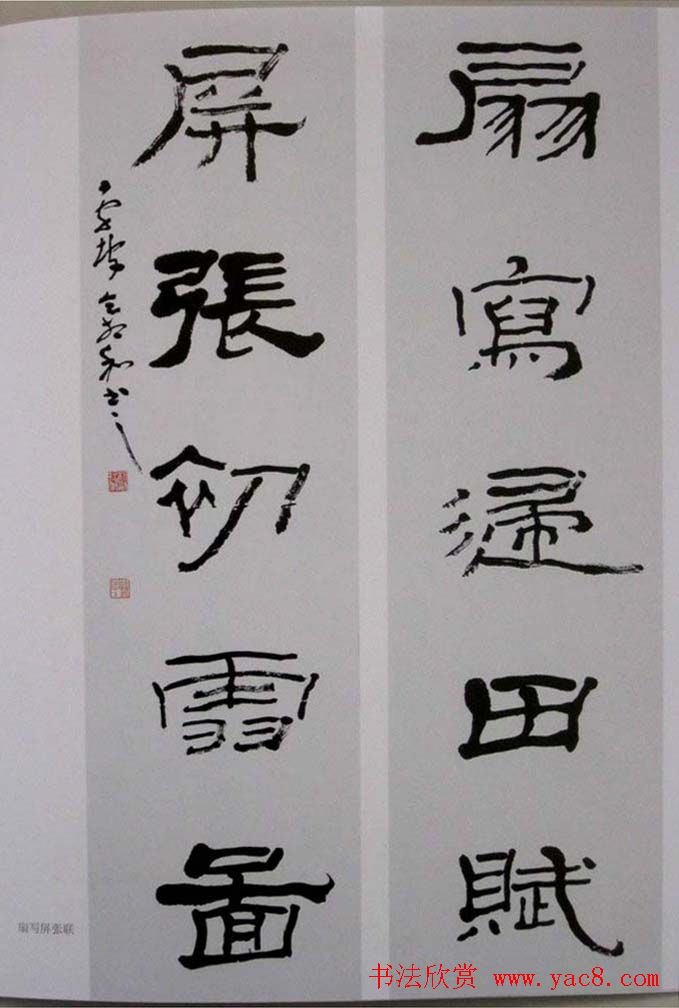 扇寫歸田賦
屏張初雪圖
扇写屏张联
书法欣赏 www.yac8.com